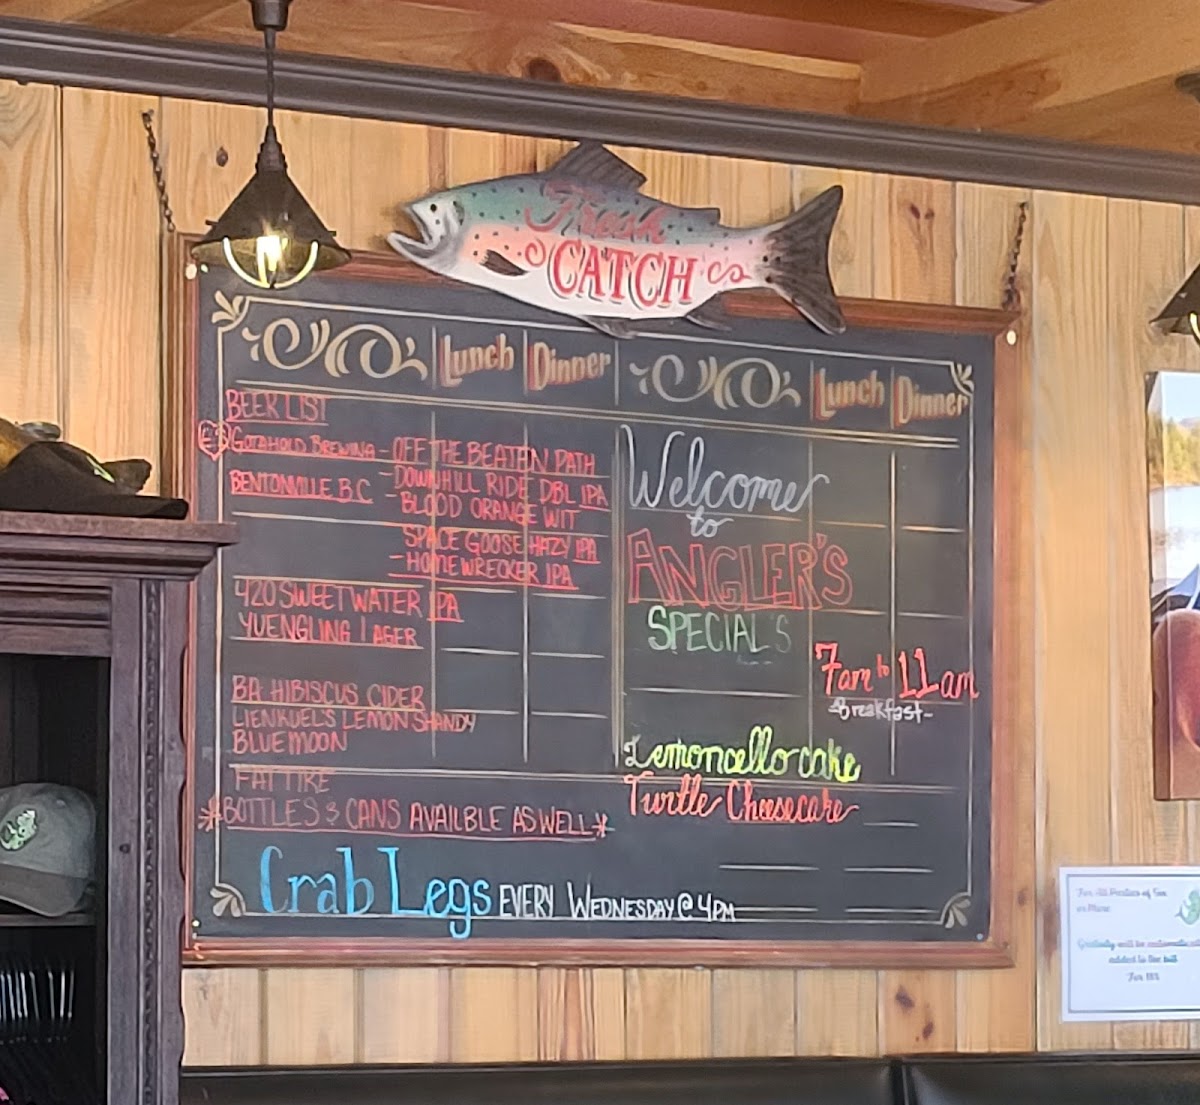 Fresh
CATCH
Lunch
Dinner
Lunch
Dinner
BEER LIST
ES GOTAHOLD BREWING - OFF THE BEATEN PATH
BENTONVILLE B.C. - DOWNHILL RIDE DBL IPA
- BLOOD ORANGE WIT
SPACE GOOSE HAZY IPA
- HOMEWRECKER IPA
420 SWEETWATER IPA
YUENGLING LAGER
BA. HIBISCUS CIDER
LIENKUEL'S LEMON SHANDY
BLUE MOON
FAT TIRE
*BOTTLES & CANS AVAILBLE AS WELL*
Crab Legs EVERY WEDNESDAY @ 4PM
Welcome
to
ANGLER'S
SPECIAL'S
7am to 11am
-Breakfast-
Lemoncello cake
Turtle Cheesecake
For All Parties of Six
or More
Gratuity will be automatically
added to the bill